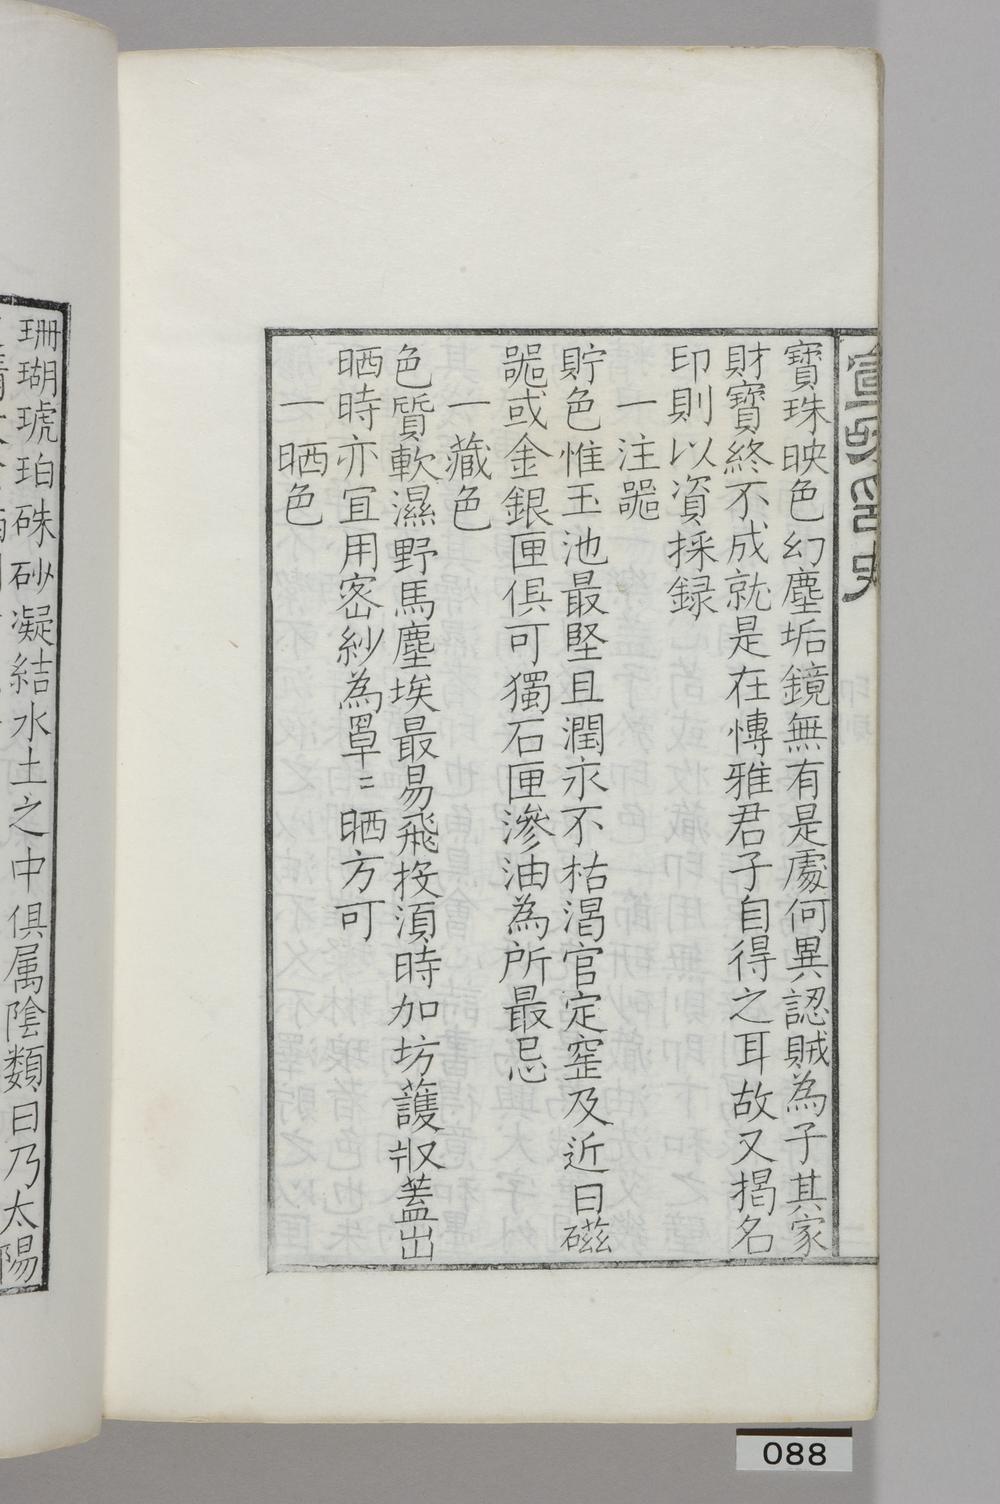 寶珠映色幻塵垢鏡無有是處何異認賊為子其家
財寶終不成就是在博雅君子自得之耳故又揭名
印則以資採録
一注噐
貯色惟玉池最堅且潤永不枯渴官定窑及近日磁
噐或金銀匣俱可獨石匣滲油為所最忌
一藏色
色質軟濕野馬塵埃最易飛投湏時加坊護㪅蓋岀
晒時亦宜用密紗為罩〻晒方可
一晒色
珊瑚琥珀硃砂凝結水土之中俱属陰類日乃太陽
088